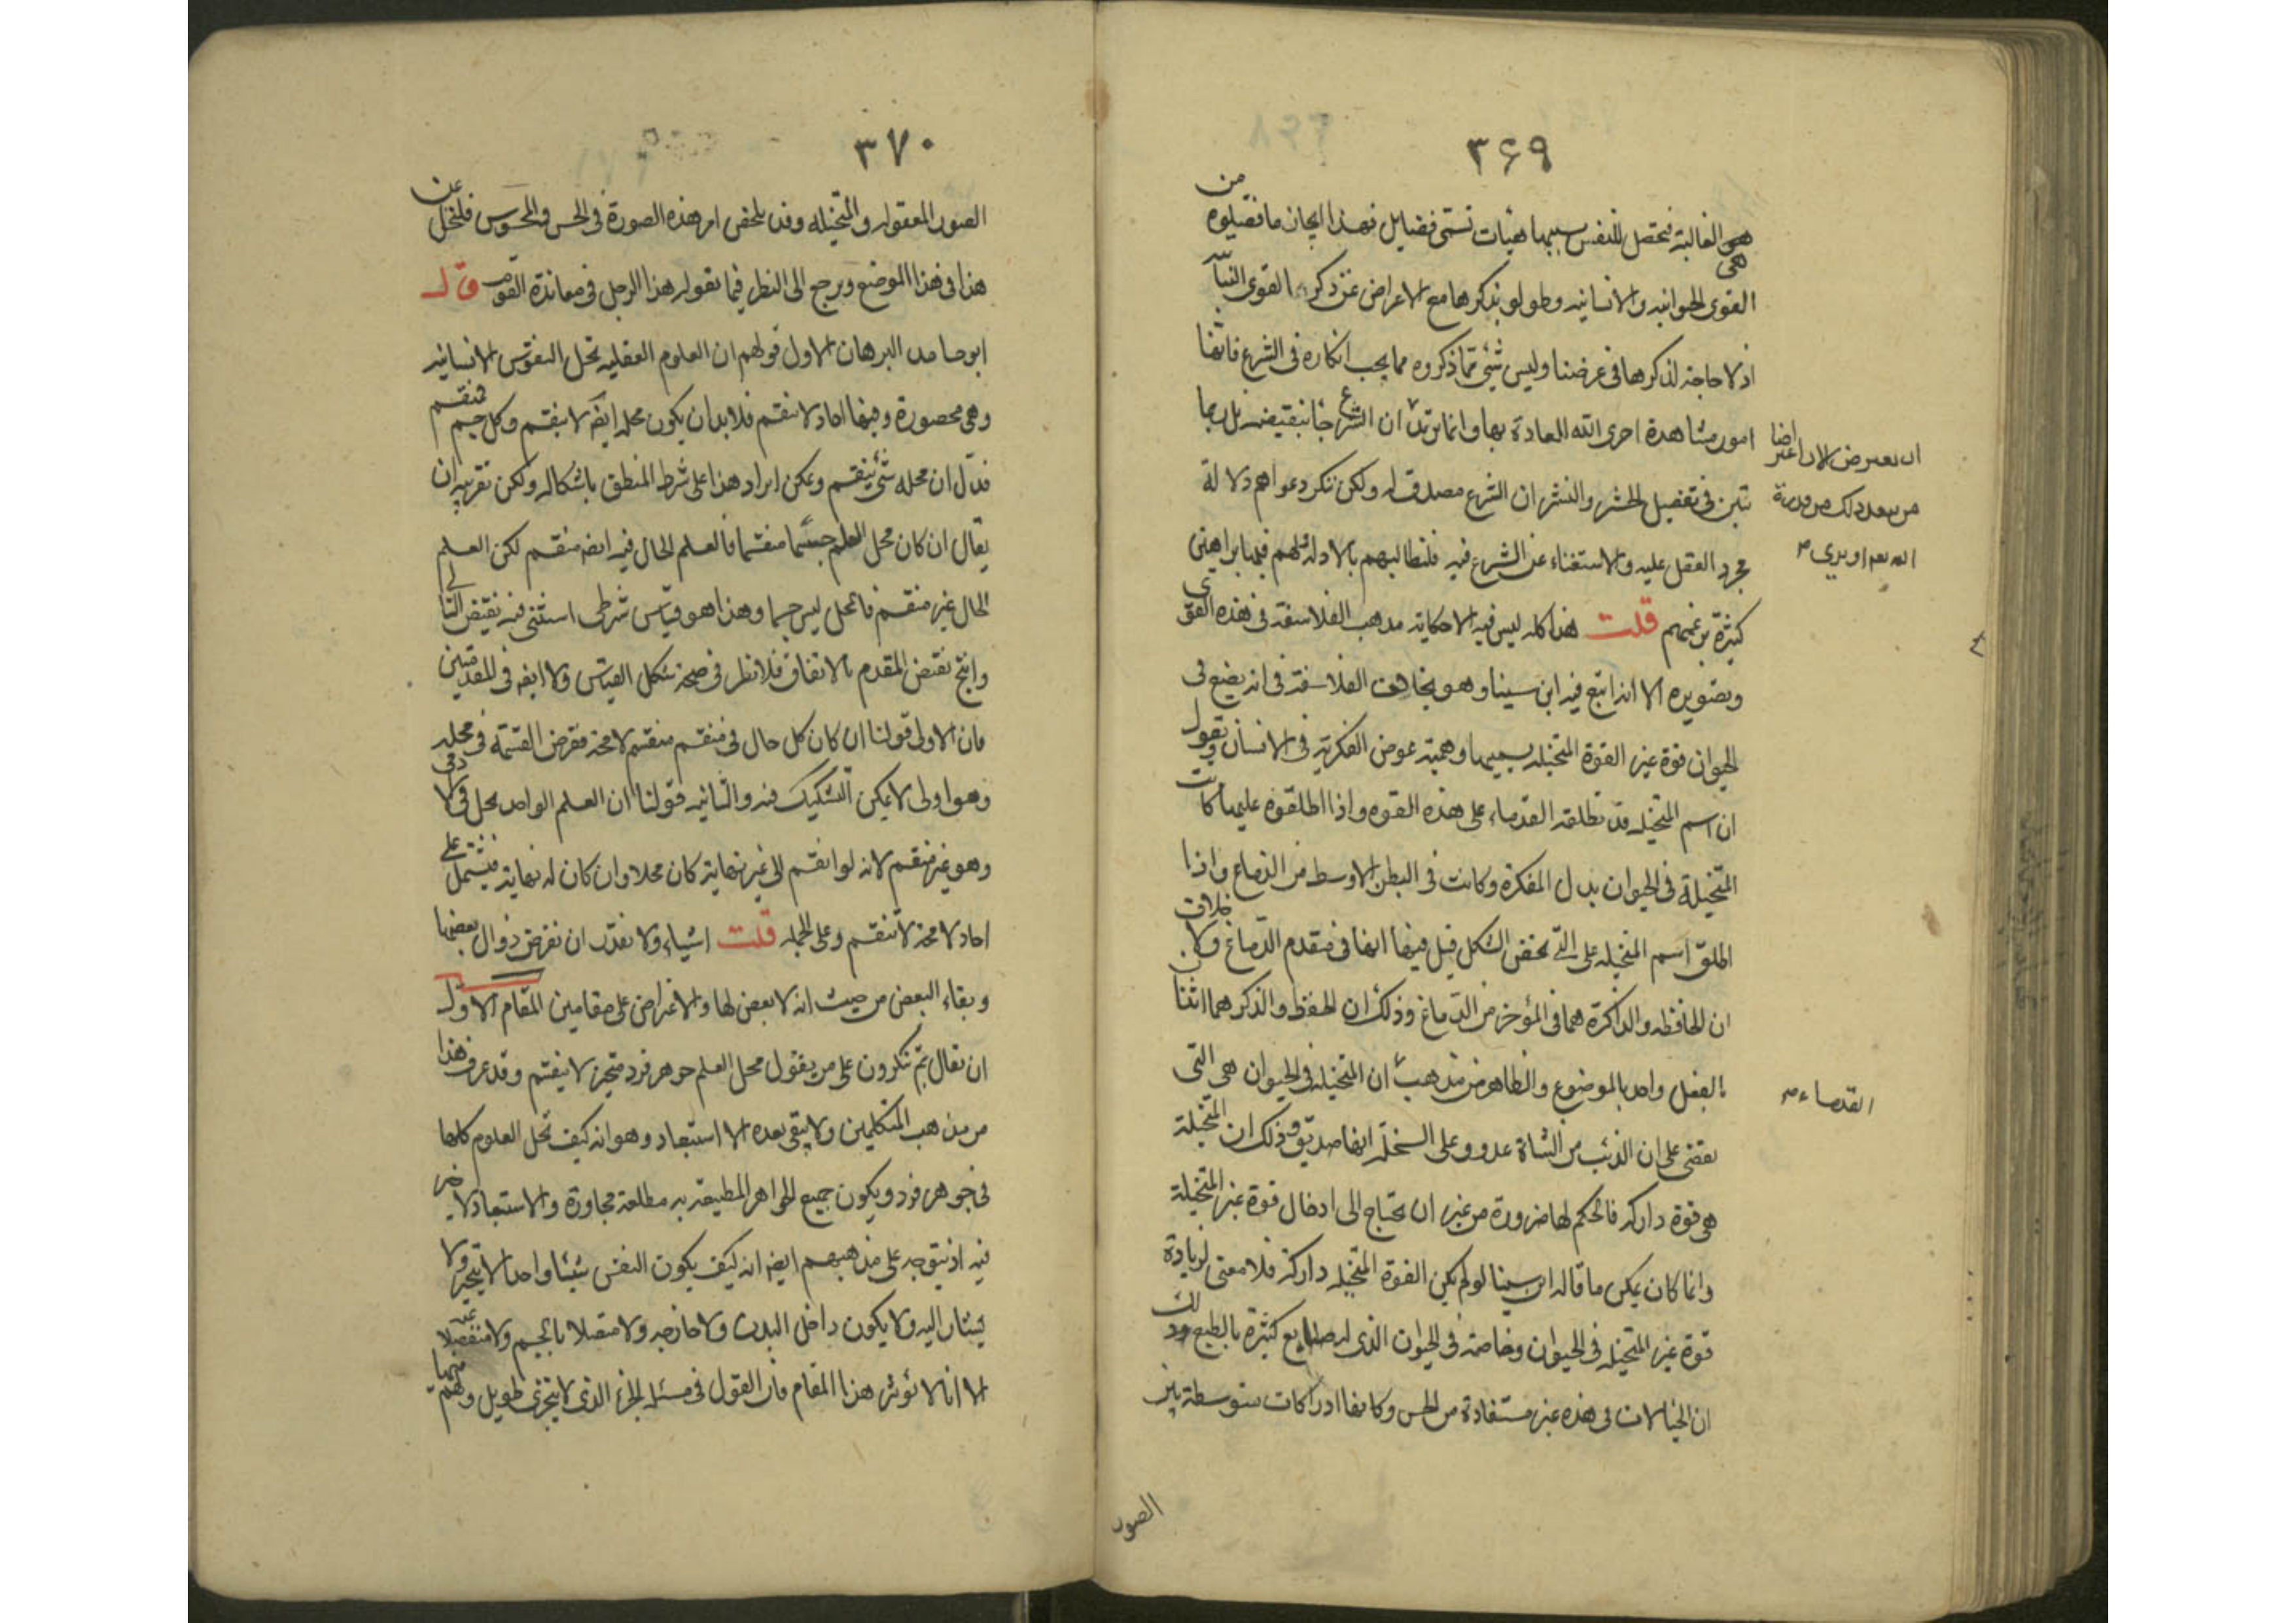 ٣٦٩
هى الغالبة فتحصل للنفس بسببها هيآت تسمى فضايل فهذا ايجاز ما فصلوه من
القوى الحيوانيه والانسانيه وطولوا بذكرها مع الاعراض عن ذكر القوى النباتية
اذ لا حاجة لذكرها فى غرضنا وليس شئ مما ذكروه مما يجب انكاره فى الشرع فانها
امور مشاهدة اجرى الله العادة بها وانما نريد
ان نعترض الان اعتراضا
ان الشرع جا بنقيضه بل ربما
تبين فى تفصيل الحشر والنشر ان الشرع مصدق له ولكن ننكر دعواهم دلالة
مجرد العقل عليه والاستغناء عن الشرع فيه فلنطالبهم بالادلة ولهم فيها براهين
كثيرة بزعمهم قلت هذا كله ليس فيه الا حكاية مذهب الفلاسفة فى هذه القوى
وتصويره الا انه اتبع فيه ابن سينا وهو يخالف الفلاسفة فى انه يضع فى
الحيوان قوة غير القوة المتخيله يسميها وهمية عوض الفكرية فى الانسان ويقول
ان اسم المتخيله قد تطلقه القدماء على هذه القوه واذا اطلقوه عليها كانت
المتخيلة فى الحيوان بدل المفكرة وكانت فى البطن الاوسط من الدماغ واذا
اطلق اسم المتخيله على التى تخص الشكل قيل فيها انها فى مقدم الدماغ ولا خلاف
ان الحافظه والذاكرة هما فى المؤخر من الدماغ وذلك ان الحفظ والذكر هما اثنان
بالفعل واحد بالموضوع والظاهر من مذهب
القدماء
ان المتخيله فى الحيوان هى التى
تقضى على ان الذئب من الشاة عدو وعلى السخلة انها صديق وذلك ان المتخيلة
هى قوة داركه فالحكم لها ضرورة من غير ان يحتاج الى ادخال قوة غير المتخيلة
وانما كان يمكن ما قاله ابن سينا لو لم يكن القوة المتخيله داركة فلا معنى لزيادة
قوة غير المتخيله فى الحيوان وخاصة فى الحيوان الذى له صنايع كثيرة بالطبع وذلك
ان الخيالات فى هذه غير مستفادة من الحس وكانها ادراكات متوسطة بين
الصور
٣٧٠
الصور المعقوله والمتخيله وقد تلخص امر هذه الصورة فى الحس والمحسوس فلنخل عن
هذا فى هذا الموضع ونرجع الى النظر فيما يقوله هذا الرجل فى معاندة القوم قال
ابو حامد البرهان الاول قولهم ان العلوم العقليه تحل النفوس الانسانيه
وهى محصورة وفيها احاد لا تنقسم فلا بد ان يكون محله ايضا لا ينقسم وكل جسم فمنقسم
فدل ان محله شئ ينقسم ويمكن ايراد هذا على شرط المنطق باشكاله ولكن تقريبه ان
يقال ان كان محل العلم جسما منقسما فالعلم الحال فيه ايضه منقسم لكن العلم
الحال غير منقسم فالمحل ليس جسما وهذا هو قياس شرطى استثنى فيه نقيض التالى
وانتج نقيض المقدم بالاتفاق فلا نظر فى صحة شكل القياس ولا ايضه فى المقدمتين
فان الاولى قولنا ان كان كل حال فى منقسم منقسم لا محة بفرض القسمة فى محله
وهو اولى لا يمكن التشكيك فيه والثانيه قولنا ان العلم الواحد يحل فى الادمى
وهو غير منقسم لانه لو انقسم الى غير نهاية كان محلا وان كان له نهاية فيشتمل على
احاد لا محة لا تنقسم وعلى الجمله قلت اشياء ولا نقدر ان نفرض زوال بعضها
وبقاء البعض من حيث انه لا بعض لها والاعراض على مقامين المقام الاول
ان يقال بم تنكرون على من يقول محل العلم جوهر فرد متحيز لا ينقسم وقد عرف هذا
من مذهب المتكلمين ولا يبقى بعده الا استبعاد وهو انه كيف تحل العلوم كلها
فى جوهر فرد ويكون جميع الجواهر المطيفة به معطلة مجاورة والاستبعاد لا خير
فيه اذ يتوجه على مذهبهم ايضه انه كيف يكون النفس شيئا واحدا لا يتحيز ولا
يشار اليه ولا يكون داخل البدن ولا خارجه ولا متصلا بالجسم ولا منفصلا عنه
الا انا لا نؤثر هذا المقام فان القول فى مسئلة الجزء الذى لا يتجزى طويل ولهم فيها